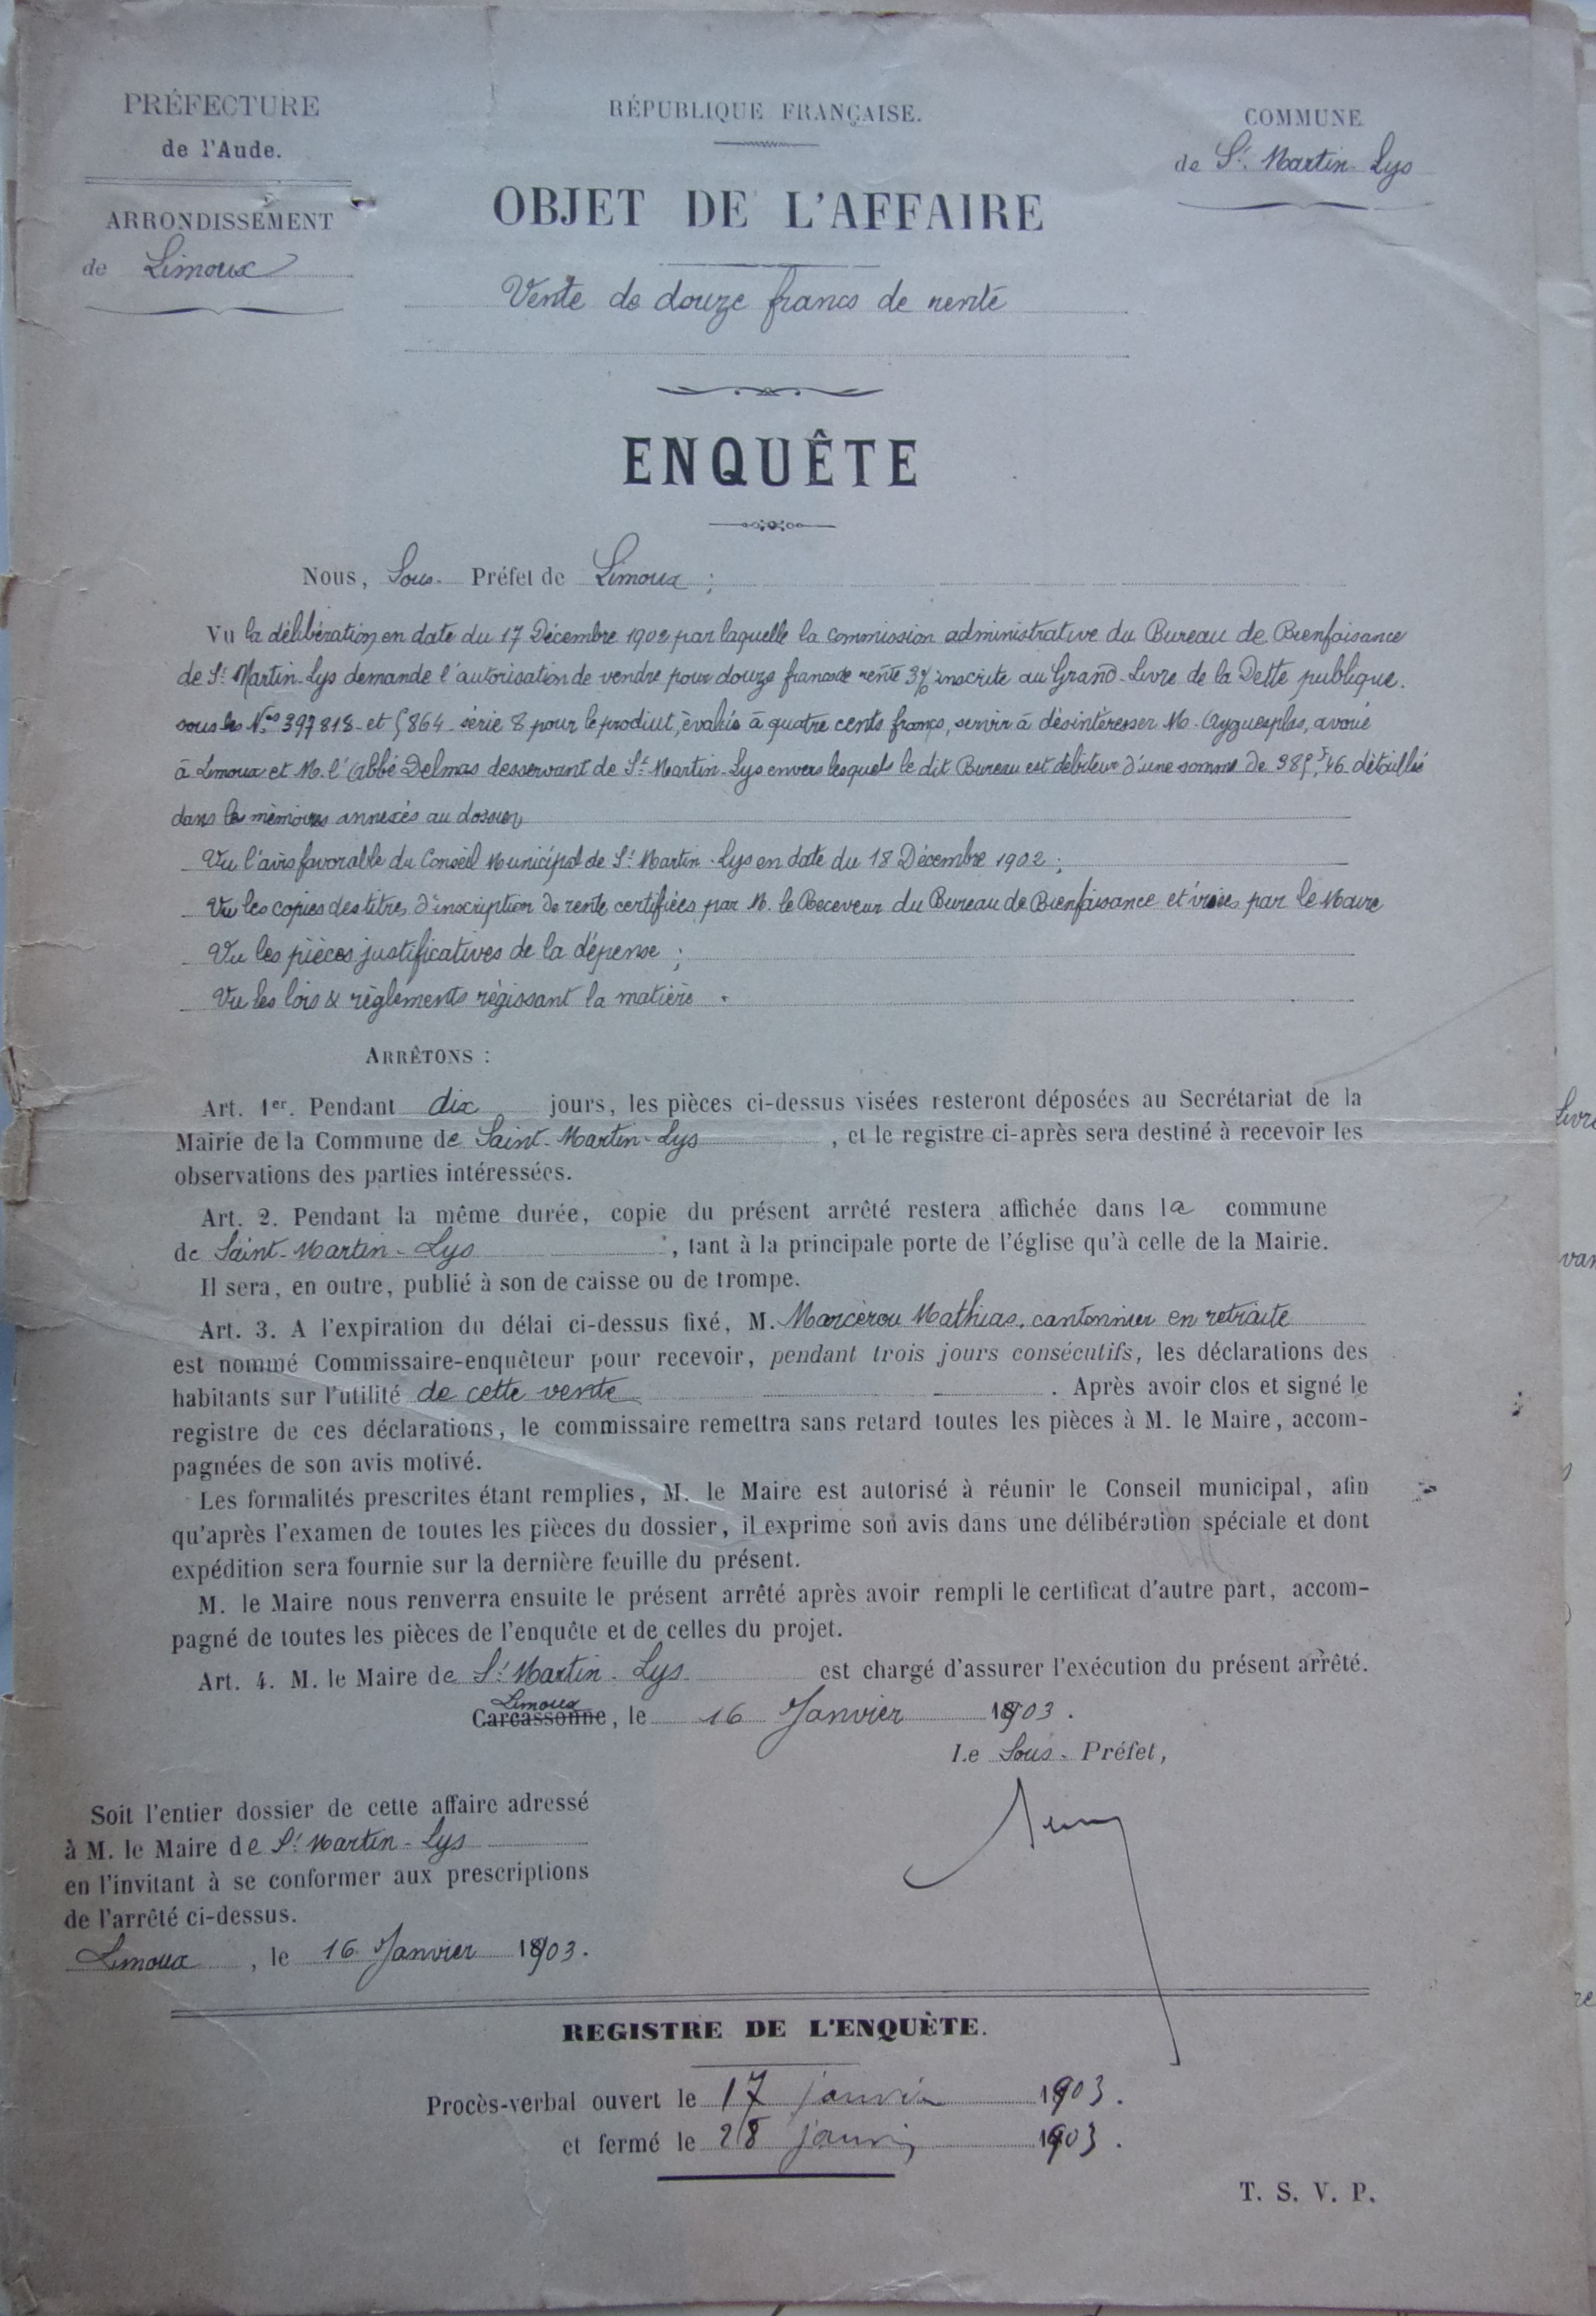 PRÉFECTURE
de l'Aude.
ARRONDISSEMENT
de Limoux
RÉPUBLIQUE FRANÇAISE.
OBJET DE L'AFFAIRE
Vente de douze francs de rente
COMMUNE
de St. Martin-Lys
ENQUÊTE
Nous, Sous-Préfet de Limoux ;
Vu la délibération en date du 17 Décembre 1902 par laquelle la commission administrative du Bureau de Bienfaisance
de St. Martin-Lys demande l'autorisation de vendre pour douze francs de rente 3% inscrite au Grand-Livre de la Dette publique.
sous les Nos 397818 et 5864 série 8 pour le produit, évalué à quatre cents francs, servir à désintéresser M. Ayguesplas, avoué
à Limoux et M. l'Abbé Delmas desservant de St. Martin-Lys envers lesquels le dit Bureau est débiteur d'une somme de 385f,46 détaillée
dans les mémoires annexés au dossier
Vu l'avis favorable du Conseil Municipal de St. Martin-Lys en date du 18 Décembre 1902 ;
Vu les copies des titres d'inscription de rente certifiées par M. le Receveur du Bureau de Bienfaisance et visées par le Maire
Vu les pièces justificatives de la dépense ;
Vu les lois & règlements régissant la matière .
ARRÊTONS :
Art. 1er. Pendant dix jours, les pièces ci-dessus visées resteront déposées au Secrétariat de la
Mairie de la Commune de Saint-Martin-Lys , et le registre ci-après sera destiné à recevoir les
observations des parties intéressées.
Art. 2. Pendant la même durée, copie du présent arrêté restera affichée dans la commune
de Saint-Martin-Lys , tant à la principale porte de l'église qu'à celle de la Mairie.
Il sera, en outre, publié à son de caisse ou de trompe.
Art. 3. A l'expiration du délai ci-dessus fixé, M. Marcérou Mathias, cantonnier en retraite
est nommé Commissaire-enquêteur pour recevoir, pendant trois jours consécutifs, les déclarations des
habitants sur l'utilité de cette vente . Après avoir clos et signé le
registre de ces déclarations, le commissaire remettra sans retard toutes les pièces à M. le Maire, accom-
pagnées de son avis motivé.
Les formalités prescrites étant remplies, M. le Maire est autorisé à réunir le Conseil municipal, afin
qu'après l'examen de toutes les pièces du dossier, il exprime son avis dans une délibération spéciale et dont
expédition sera fournie sur la dernière feuille du présent.
M. le Maire nous renverra ensuite le présent arrêté après avoir rempli le certificat d'autre part, accom-
pagné de toutes les pièces de l'enquête et de celles du projet.
Art. 4. M. le Maire de St. Martin-Lys est chargé d'assurer l'exécution du présent arrêté.
Limoux
Carcassonne, le 16 Janvier 1903.
Le Sous-Préfet,
Soit l'entier dossier de cette affaire adressé
à M. le Maire de St. Martin-Lys
en l'invitant à se conformer aux prescriptions
de l'arrêté ci-dessus.
Limoux , le 16 Janvier 1903.
REGISTRE DE L'ENQUÈTE.
Procès-verbal ouvert le 17 janvier 1903.
et fermé le 28 janvier 1903.
T. S. V. P.